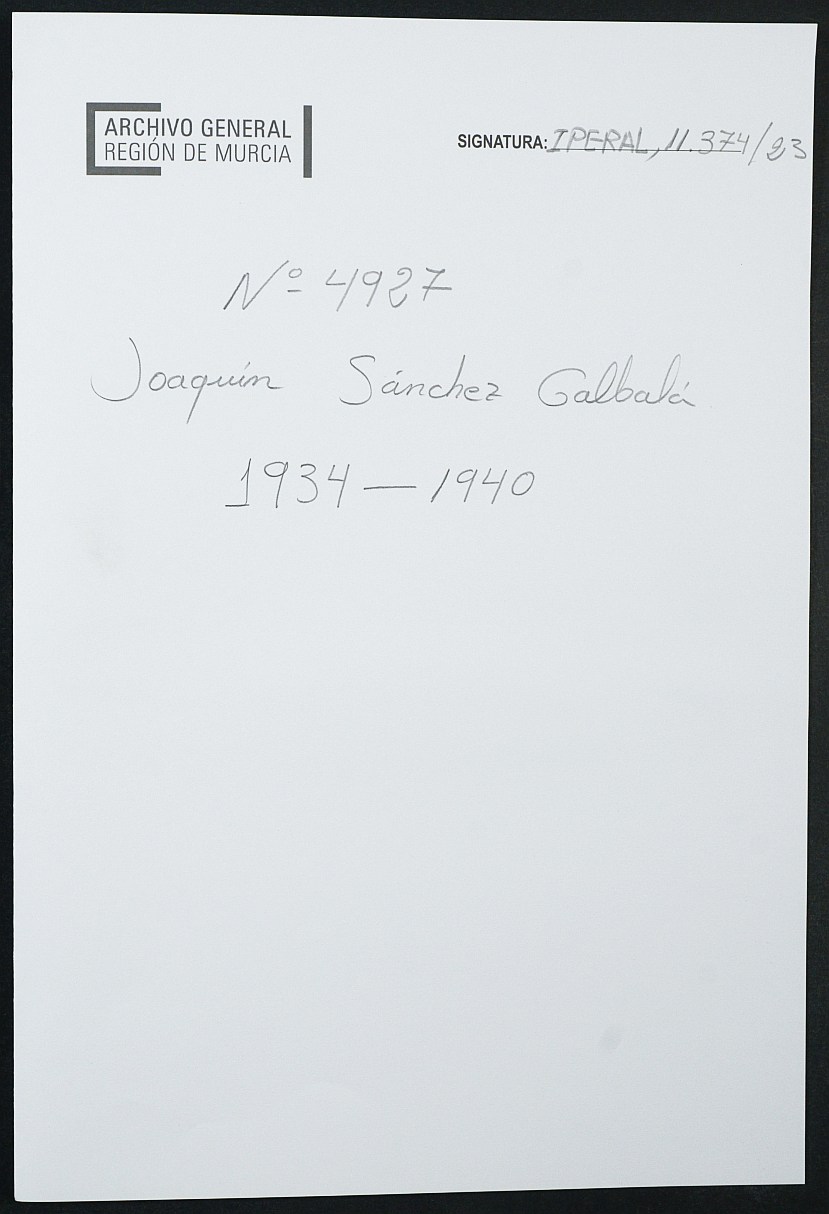 ARCHIVO GENERAL
REGIÓN DE MURCIA
SIGNATURA: IPERAL, 11.374/23
Nº 4927
Joaquín Sánchez Galbalá
1934 — 1940